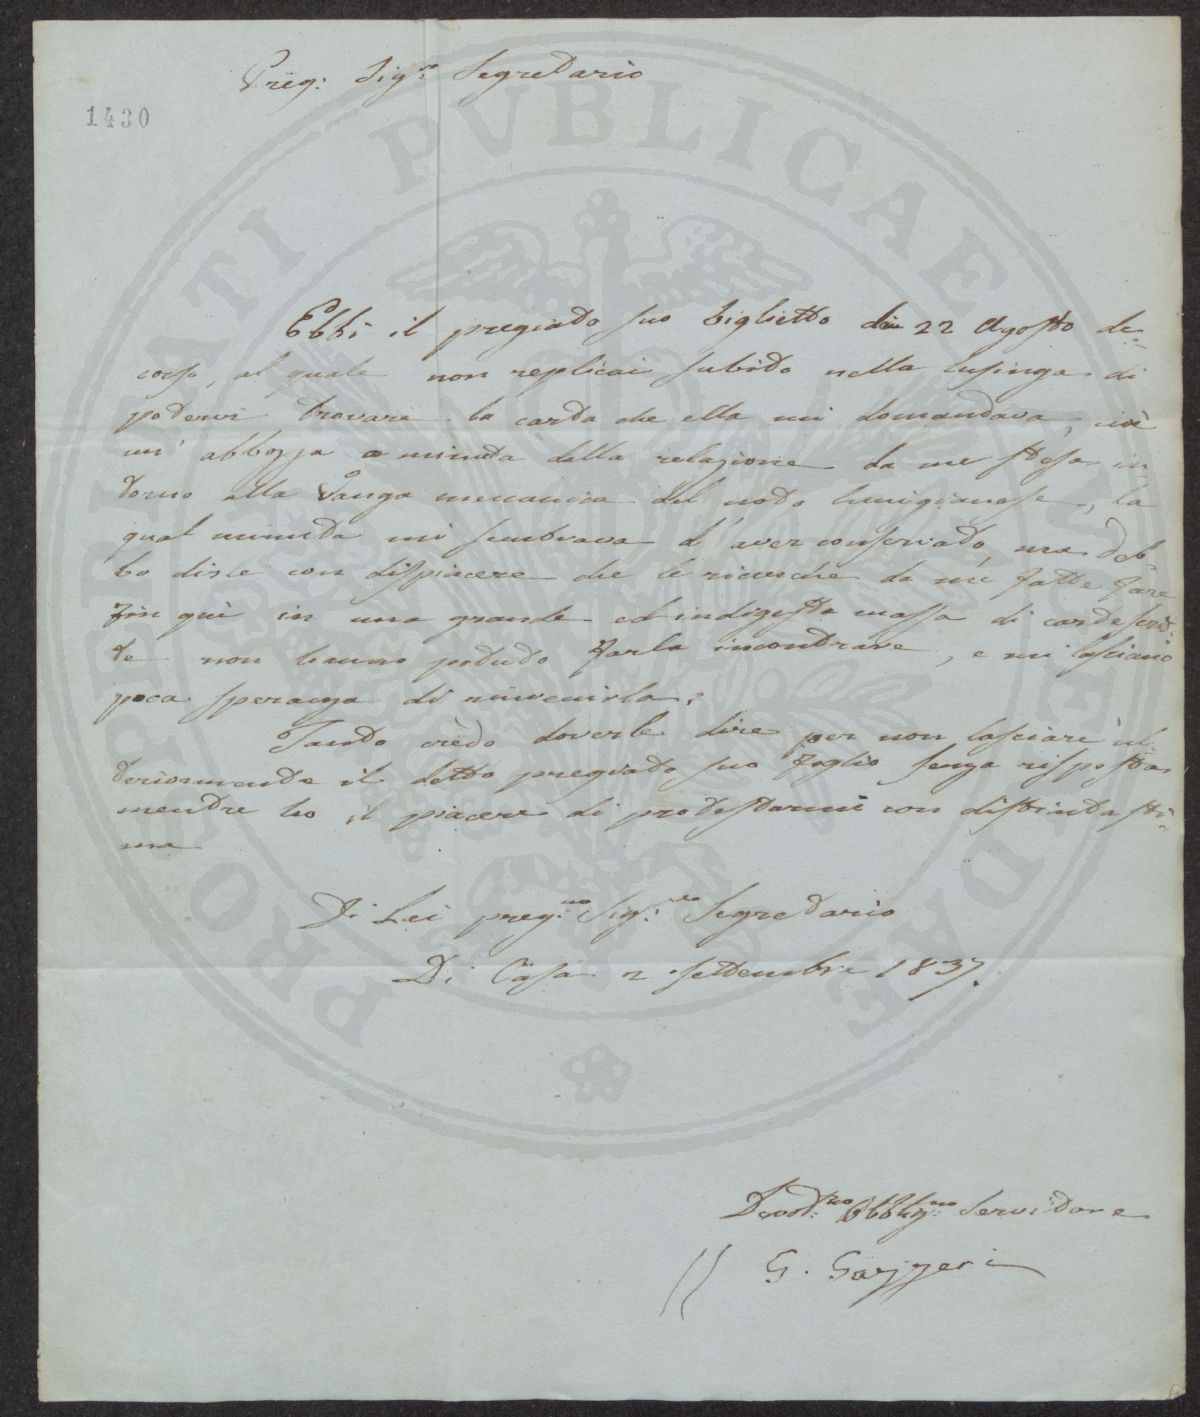 Preg: Sig.re Segretario
1430
Ebbi il pregiato suo biglietto di 22 Agosto de=
corso, al quale non replicai subito nella lusinga di
potervi trovare la carta che ella mi domandava, cioè
un' abbozzo o minuta della relazione da me stesa in
torno alla Vanga meccanica del noto lunigianese, la
qual minuta mi sembrava d' aver conservato, ma deb=
bo dirle con dispiacere che le ricerche da me fatte fare
fin quì in una grande ed indigesta massa di carte scrit=
te non hanno potuto farla incontrare, e mi lasciano
poca speranza di rinvenirla.
Tanto credo doverle dire per non lasciare ul=
teriormente il detto pregiato suo foglio senza risposta
mentre ho il piacere di protestarmi con distinta sti=
ma
Di Lei preg.mo Sig.re Segretario
Di Casa 2 settembre 1837.
Devot.mo Obblig.mo Servitore
G. Gazzeri
PROPRIETATI PVBLICAE